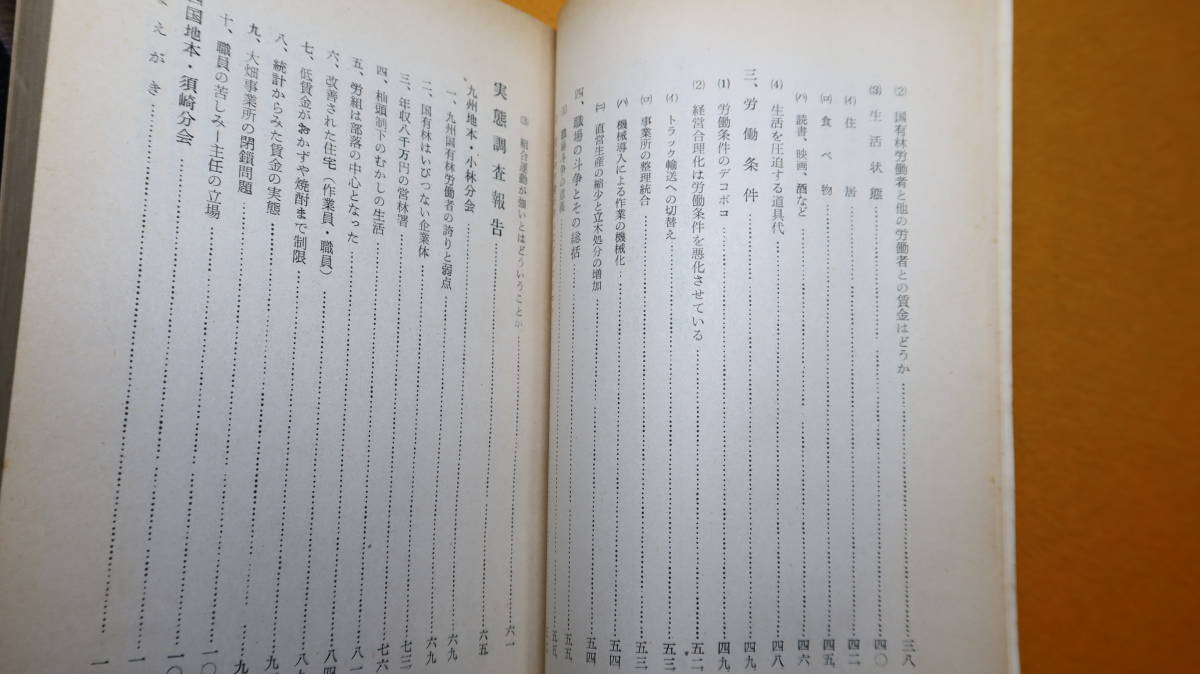 ⑵ 国有林労働者と他の労働者との賃金はどうか…………三八
⑶ 生活状態…………四〇
㈑ 住居…………四二
㈺ 食べ物…………四五
㈩ 読書、映画、酒など…………四六
⑷ 生活を圧迫する道具代…………四八
三、労働条件…………四九
⑴ 労働条件のデコボコ…………四九
⑵ 経営合理化は労働条件を悪化させている…………五二
(イ) トラック輸送への切替え…………五三
(ロ) 事業所の整理統合…………五三
(ハ) 機械導入による作業の機械化…………五四
(ニ) 直営生産の縮少と立木処分の増加…………五四
四、職場の斗争とその総括…………五五
職場斗争の…………五五
⑶ 組合運動が強いとはどういうことか…………六一
実態調査報告
九州地本・小林分会…………六五
一、九州国有林労働者の誇りと弱点…………六九
二、国有林はいびつない企業体…………六九
三、年収八千万円の営林署…………七三
四、杣頭制下のむかしの生活…………七六
五、労組は部落の中心となった…………八一
六、改善された住宅(作業員・職員)…………八四
七、低賃金がおかずや焼酎まで制限…………八
八、統計からみた賃金の実態…………九
九、大畑事業所の閉鎖問題…………九
十、職員の苦しみ―主任の立場…………一〇
国地本・須崎分会…………一〇
えがき…………一